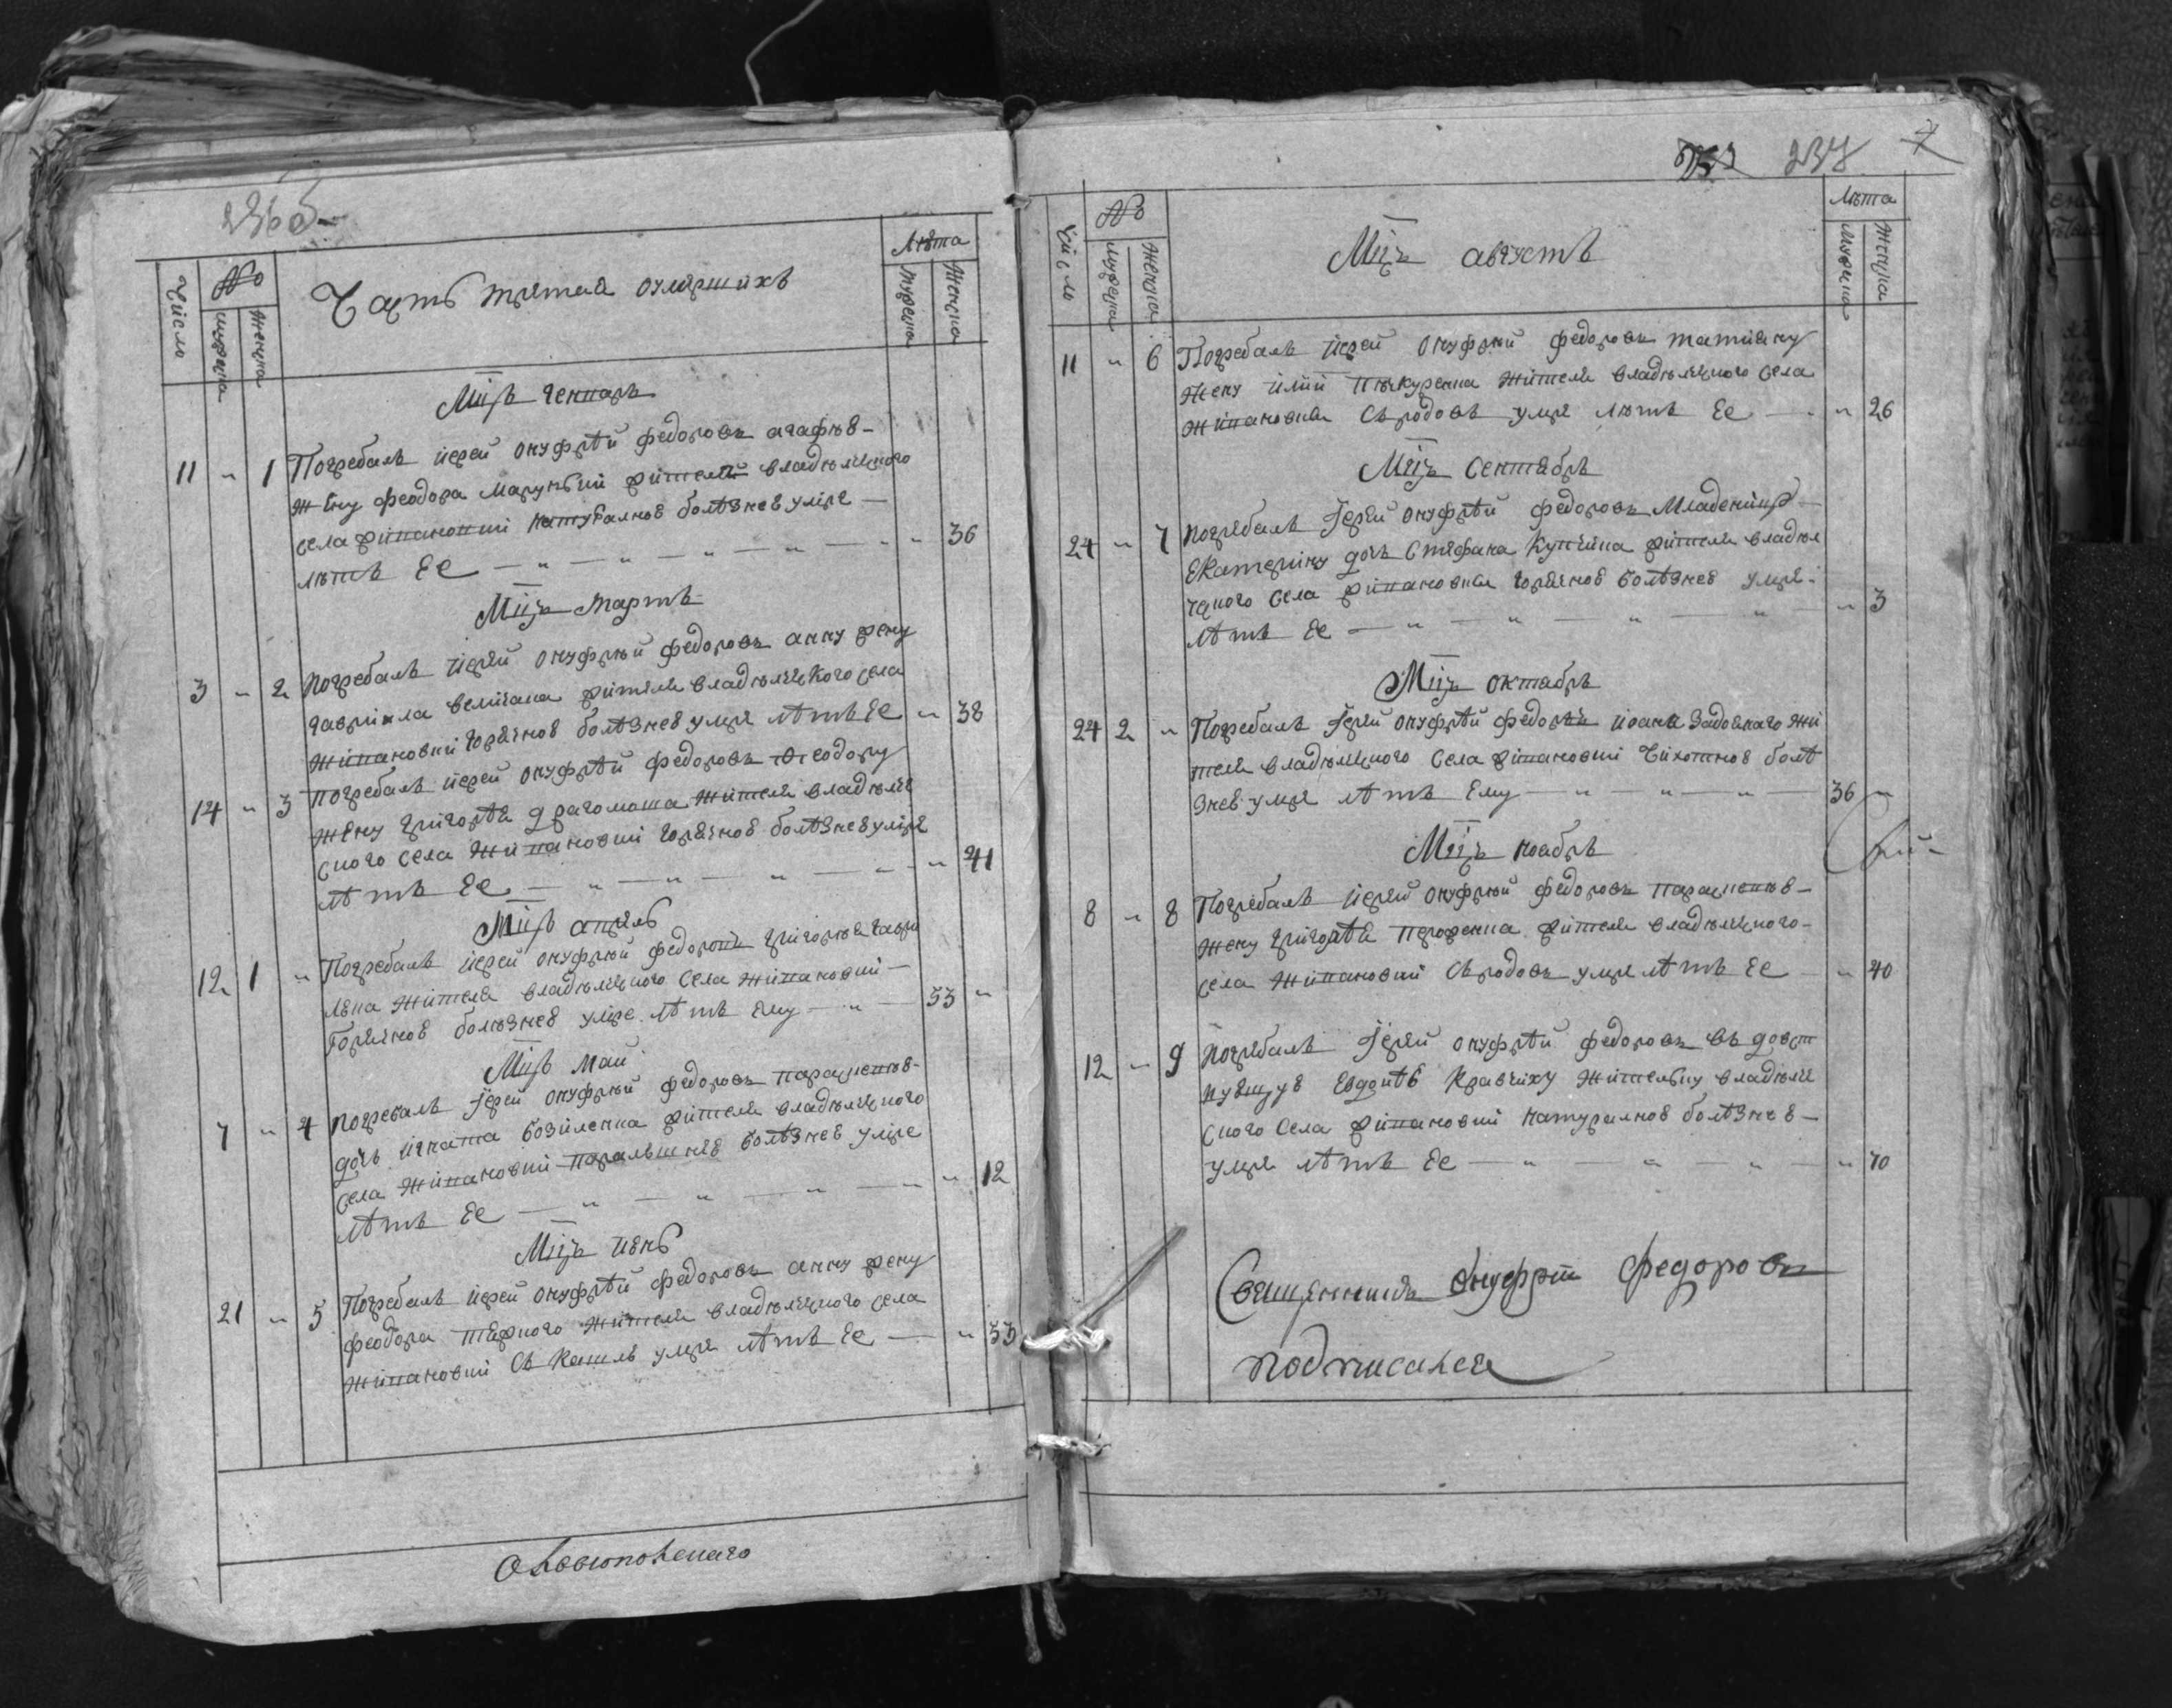 236об
Число
№
мужеска
женска
Часть третая оумершихъ
Лѣта
Мужеска
Женска
Мцъ генпаръ
11 " 1 Погребалъ иерей онуфрѣй федоровъ агафию
жену феодора марунѣи жителя владѣлчного
села жипановки натуралною болѣзнею умре
лѣтъ Ее " 36
Мцъ мартъ
3 " 2 Погребалъ иерей онуфрий федоровъ анну жену
гавриила величана жителя владѣлческого села
жипановки горячною болѣзнею умре лѣтъ Ее " 38
14 " 3 погребалъ иерей онуфрѣй федоровъ Феодору
жену григорѣя драгомана жителя владѣлче
сного села жипановки горячною болѣзнею умре
лѣтъ Ее " 41
Мцъ апрель
12 1 " Погребалъ иерей онуфрий федоровъ григория гаври
жителя владѣлчного села жипановки
Горячною болѣзнею умре лѣтъ Ему 53 "
Мцъ май
7 " 4 погребалъ Іерей онуфрий федоровъ
дочь игната жителя владѣлчного
села жипановки болѣзнею умре
лѣтъ Ее " 12
Мцъ июнь
21 " 5 Погребалъ иерей онуфрѣй федоровъ анну жену
феодора жителя владѣлчного села
жипановки Съ Кашлю умре лѣтъ Ее " 53
237
Число
№
мужеска
женска
Мцъ августъ
Лѣта
Мужеска
Женска
11 " 6 Погребалъ иерей Онуфрий федоровъ татияну
жену илии жителя владѣлчного села
жипановки Съ родовъ умре лѣтъ Ее " 26
Мцъ Септябръ
24 " 7 погребалъ Іерей онуфрѣй федоровъ Младеницу
Екатерину дочь Стефана Купчина жителя владѣл
чного Села жипановки горячною болѣзнею умре
лѣтъ Ее " 3
Мцъ октябръ
24 2 " Погребалъ Іерей онуфрѣй федоровъ иоана Задояного жи
теля владѣлчного Села жипановки Чихотною болѣ
знею умре лѣтъ Ему 36 "
Мцъ ноябръ
8 " 8 Погребалъ иерей онуфрий федоровъ
жену григорѣя жителя владѣлчного
села жипановки Съ родовъ умре лѣтъ Ее " 40
12 " 9 Погребалъ Іерей онуфрѣй федоровъ въ довст
Евдоию Кравчиху жителъну владѣлче
сного Села жипановки натуралною болѣзнею
умре лѣтъ Ее " 70
Священникъ Онуфрѣй Федоровъ
подписался